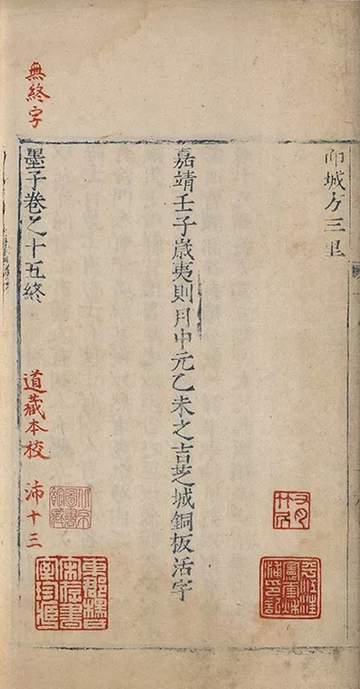 帀城方三里
嘉靖壬子歳夷則月中元乙未之吉芝城銅板活字
墨子卷之十五終
無終字
道藏本校 沛十三